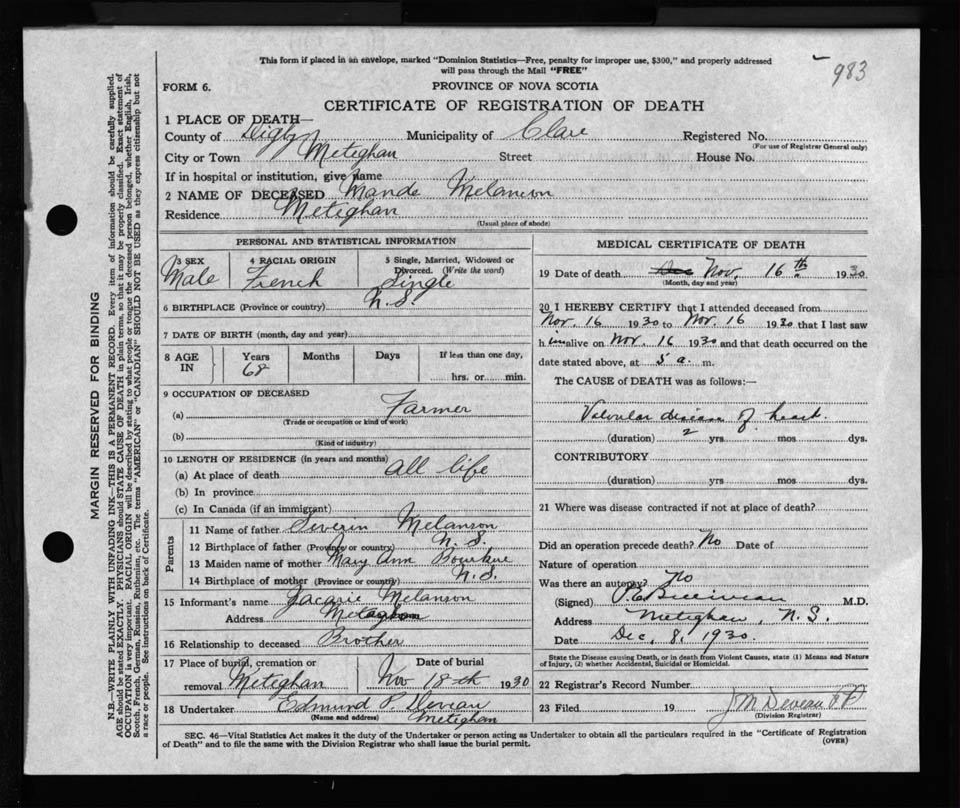 This form if placed in an envelope, marked "Dominion Statistics—Free, penalty for improper use, $300," and properly addressed
will pass through the Mail "FREE"
983
FORM 6.
PROVINCE OF NOVA SCOTIA
CERTIFICATE OF REGISTRATION OF DEATH
1 PLACE OF DEATH—
County of Digby Municipality of Clare Registered No.
(For use of Registrar General only)
City or Town Meteghan Street House No.
If in hospital or institution, give name
2 NAME OF DECEASED Mande Melanson
Residence Meteghan
(Usual place of abode)
PERSONAL AND STATISTICAL INFORMATION
3 SEX 4 RACIAL ORIGIN 5 Single, Married, Widowed or
Divorced. (Write the word)
Male French Single
6 BIRTHPLACE (Province or country) N.S.
7 DATE OF BIRTH (month, day and year)
8 AGE IN Years Months Days If less than one day,
68 hrs. or min.
9 OCCUPATION OF DECEASED
(a) Farmer
(Trade or occupation or kind of work)
(b)
(Kind of industry)
10 LENGTH OF RESIDENCE (in years and months)
(a) At place of death all life
(b) In province
(c) In Canada (if an immigrant)
Parents
11 Name of father Severin Melanson
12 Birthplace of father (Province or country) N.S.
13 Maiden name of mother Mary Ann
14 Birthplace of mother (Province or country) N.S.
15 Informant's name Zacarie Melanson
Address Meteghan
16 Relationship to deceased Brother
17 Place of burial, cremation or Date of burial
removal Meteghan Nov 18th 1930
18 Undertaker Edmund P. Deveau
(Name and address) Meteghan
MEDICAL CERTIFICATE OF DEATH
19 Date of death Dec Nov. 16th 1930
(Month, day and year)
20 I HEREBY CERTIFY that I attended deceased from
Nov. 16 1930 to Nov. 16 1930 that I last saw
him alive on Nov. 16 1930 and that death occurred on the
date stated above, at 5 a. m.
The CAUSE of DEATH was as follows:—
Valvular disease of heart.
(duration) 2 yrs. mos. dys.
CONTRIBUTORY
(duration) yrs. mos. dys.
21 Where was disease contracted if not at place of death?
Did an operation precede death? No Date of
Nature of operation
Was there an autopsy? No
(Signed) M.D.
Address Meteghan, N.S.
Date Dec. 8, 1930.
State the Disease causing Death, or in death from Violent Causes, state (1) Means and Nature
of Injury, (2) whether Accidental, Suicidal or Homicidal.
22 Registrar's Record Number
23 Filed 19 J M Deveau J P
(Division Registrar)
SEC. 46—Vital Statistics Act makes it the duty of the Undertaker or person acting as Undertaker to obtain all the particulars required in the "Certificate of Registration
of Death" and to file the same with the Division Registrar who shall issue the burial permit.
(OVER)
MARGIN RESERVED FOR BINDING
N.B.—WRITE PLAINLY WITH UNFADING INK—THIS IS A PERMANENT RECORD. Every item of information should be carefully supplied.
AGE should be stated EXACTLY. PHYSICIANS should STATE CAUSE OF DEATH in plain terms, so that it may be properly classified. Exact statement of
OCCUPATION is very important. RACIAL ORIGIN will be described by stating to what people or tongue the deceased person belonged, whether English, Irish,
Scotch, French, German, Russian, Ruthenian, etc. The terms "AMERICAN" or "CANADIAN" SHOULD NOT BE USED as they express citizenship but not
a race or people. See instructions on back of Certificate.